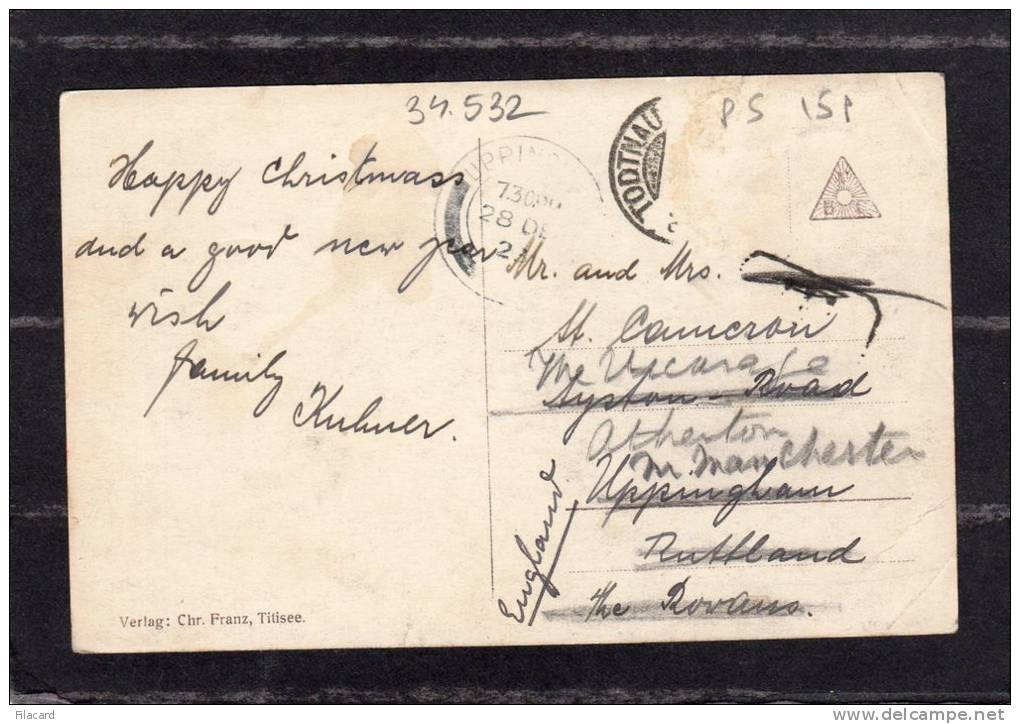 34.532
PS 15P
UPPING
7.30PM
28 DE
TODTNAU
Happy Christmass
and a good new year
wish
family
Kuhner.
Mr. and Mrs.
St. Cameron
The Vicarage
Syston Road
Atherton
nr. Manchester
Uppingham
Ruttland
the Rowans.
England
Verlag: Chr. Franz, Titisee.
Filacard
www.delcampe.net